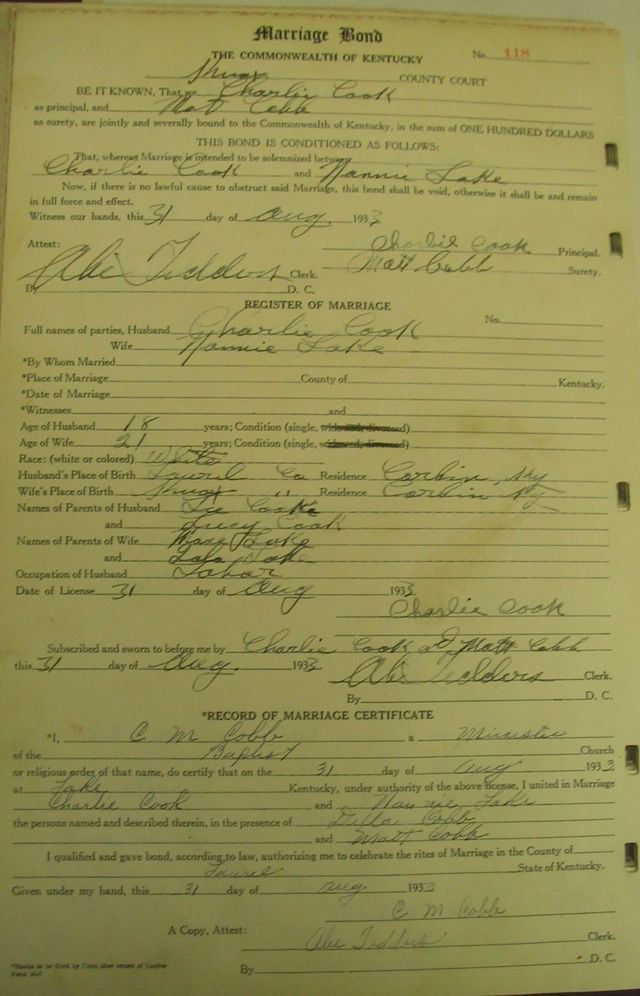 Marriage Bond
THE COMMONWEALTH OF KENTUCKY No. 118
Knox COUNTY COURT
BE IT KNOWN, That we Charlie Cook
as principal, and Matt Cobb
as surety, are jointly and severally bound to the Commonwealth of Kentucky, in the sum of ONE HUNDRED DOLLARS
THIS BOND IS CONDITIONED AS FOLLOWS:
That, whereas Marriage is intended to be solemnized between
Charlie Cook and Nannie Lake
Now, if there is no lawful cause to obstruct said Marriage, this bond shall be void, otherwise it shall be and remain
in full force and effect.
Witness our hands, this 31 day of Aug. 1933
Attest: Charlie Cook Principal.
Abe Tedders Clerk. Matt Cobb Surety.
By D. C.
REGISTER OF MARRIAGE
No.
Full names of parties, Husband Charlie Cook
Wife Nannie Lake
*By Whom Married
*Place of Marriage County of Kentucky.
*Date of Marriage
*Witnesses and
Age of Husband 18 years; Condition (single, widowed, divorced)
Age of Wife 21 years; Condition (single, widowed, divorced)
Race: (white or colored) White
Husband's Place of Birth Laurel Co Residence Corbin, Ky
Wife's Place of Birth Knox " Residence Corbin Ky
Names of Parents of Husband Cook
and Lucy Cook
Names of Parents of Wife Lake
and Lake
Occupation of Husband Labor
Date of License 31 day of Aug 1933
Charlie Cook
Subscribed and sworn to before me by Charlie Cook & Matt Cobb
this 31 day of Aug. 1933 Abe Tedders Clerk.
By D. C.
*RECORD OF MARRIAGE CERTIFICATE
*I, C M Cobb a Minister
of the Baptist Church
or religious order of that name, do certify that on the 31 day of Aug 1933
at Lake Kentucky, under authority of the above license, I united in Marriage
Charlie Cook and Nannie Lake
the persons named and described therein, in the presence of Della Cobb
and Matt Cobb
I qualified and gave bond, according to law, authorizing me to celebrate the rites of Marriage in the County of
Laurel State of Kentucky.
Given under my hand, this 31 day of Aug 1933
C M Cobb
A Copy, Attest: Abe Tedders Clerk.
By D. C.